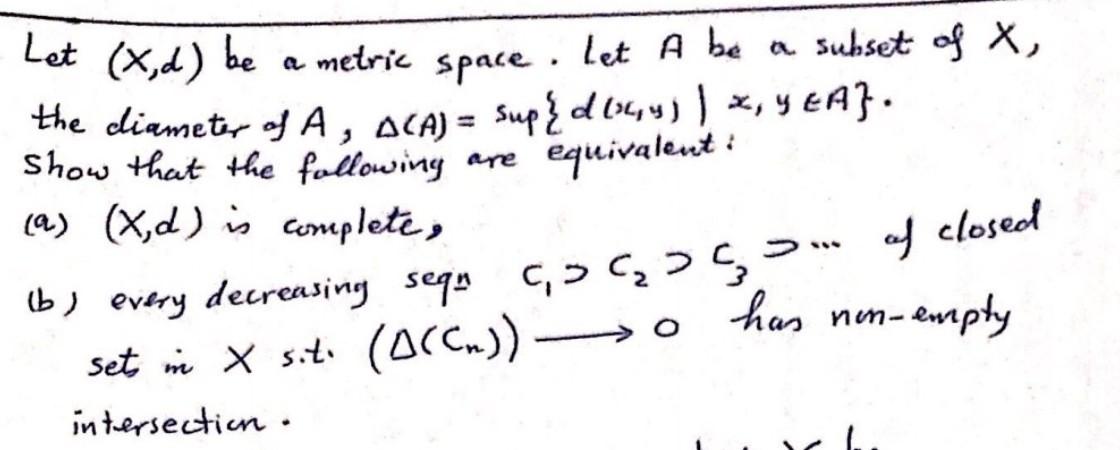 Let (X,d) be a metric space. Let A be a subset of X,
the diameter of A, Δ(A) = sup{ d(x,y) | x, y ∈ A }.
Show that the following are equivalent:
(a) (X,d) is complete,
(b) every decreasing seqn C₁ ⊃ C₂ ⊃ C₃ ⊃ ... of closed
sets in X s.t. (Δ(Cₙ)) ⟶ 0 has non-empty
intersection.